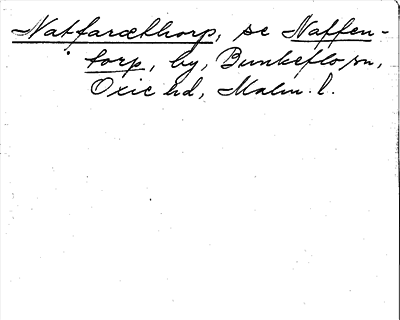 Natfaræthorp, se Naffen-
torp, by, Bunkeflo sn,
Oxie hd, Malm. l.